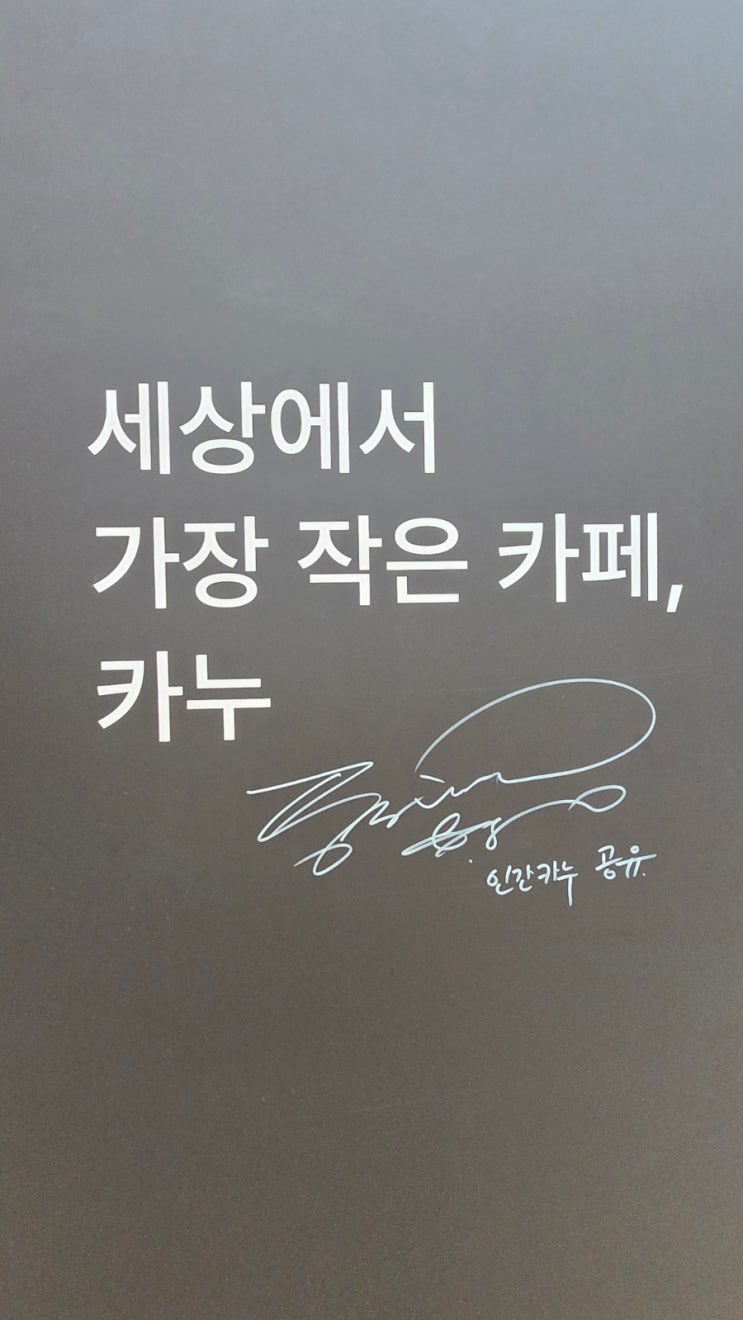 세상에서
가장 작은 카페,
카누
인간카누 공유.